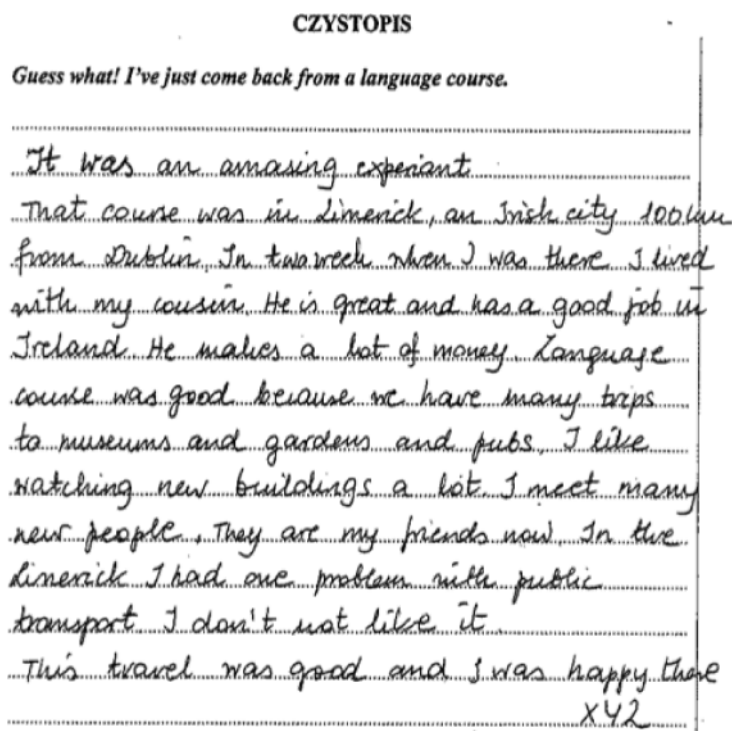 CZYSTOPIS
Guess what! I've just come back from a language course.
It was an amasing experiant
That course was in Limerick, an Irish city 100 km
from Dublin. In two week when I was there I lived
with my cousin. He is great and has a good job in
Ireland. He makes a lot of money. Language
course was good because we have many trips
to museums and gardens and pubs. I like
watching new buildings a lot. I meet many
new people. They are my friends now. In the
Limerick I had one problem with public
transport. I don't not like it.
This travel was good and I was happy there
XYZ